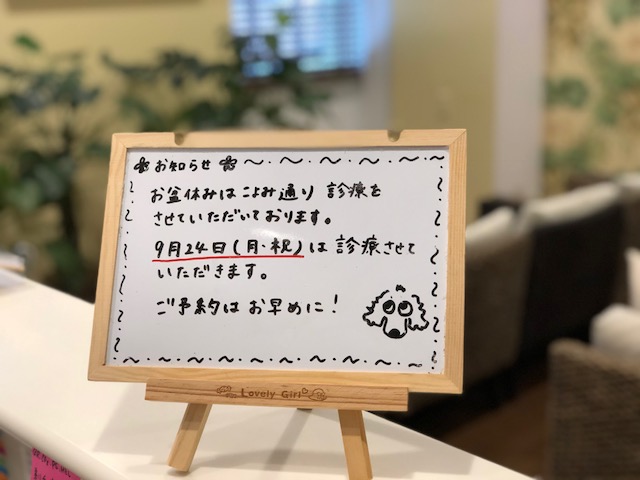 お知らせ
お盆休みはこよみ通り 診療を
させていただいております。
9月24日(月・祝)は診療させて
いただきます。
ご予約はお早めに!
Lovely Girl